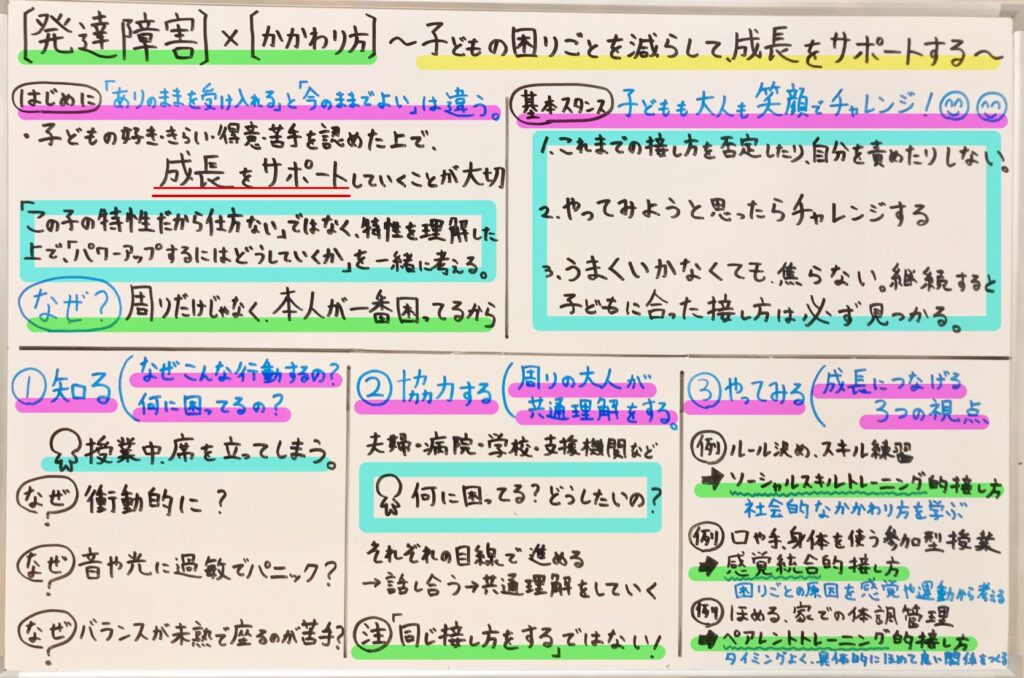 [発達障害]×[かかわり方] ～子どもの困りごとを減らして、成長をサポートする～
はじめに 「ありのままを受け入れる」と「今のままでよい」は違う。
・子どもの好き・きらい・得意・苦手を認めた上で、
成長をサポートしていくことが大切
「この子の特性だから仕方ない」ではなく、特性を理解した
上で、「パワーアップするにはどうしていくか」を一緒に考える。
なぜ? 周りだけじゃなく、本人が一番困ってるから
基本スタンス 子どもも大人も笑顔でチャレンジ!
1. これまでの接し方を否定したり、自分を責めたりしない。
2. やってみようと思ったらチャレンジする
3. うまくいかなくても、焦らない。継続すると
子どもに合った接し方は必ず見つかる。
① 知る (なぜこんな行動するの?
何に困ってるの?
授業中、席を立ってしまう。
なぜ? 衝動的に?
なぜ? 音や光に過敏でパニック?
なぜ? バランスが未熟で座るのが苦手?
② 協力する (周りの大人が
共通理解をする。
夫婦・病院・学校・支援機関など
何に困ってる?どうしたいの?
それぞれの目線で進める
→話し合う→共通理解をしていく
注 「同じ接し方をする」ではない!
③ やってみる (成長につなげる
3つの視点
例 ルール決め、スキル練習
➡ ソーシャルスキルトレーニング的接し方
社会的なかかわり方を学ぶ
例 口や手、身体を使う参加型授業
➡ 感覚統合的接し方
困りごとの原因を感覚や運動から考える
例 ほめる、家での体調管理
➡ ペアレントトレーニング的接し方
タイミングよく、具体的にほめて良い関係をつくる